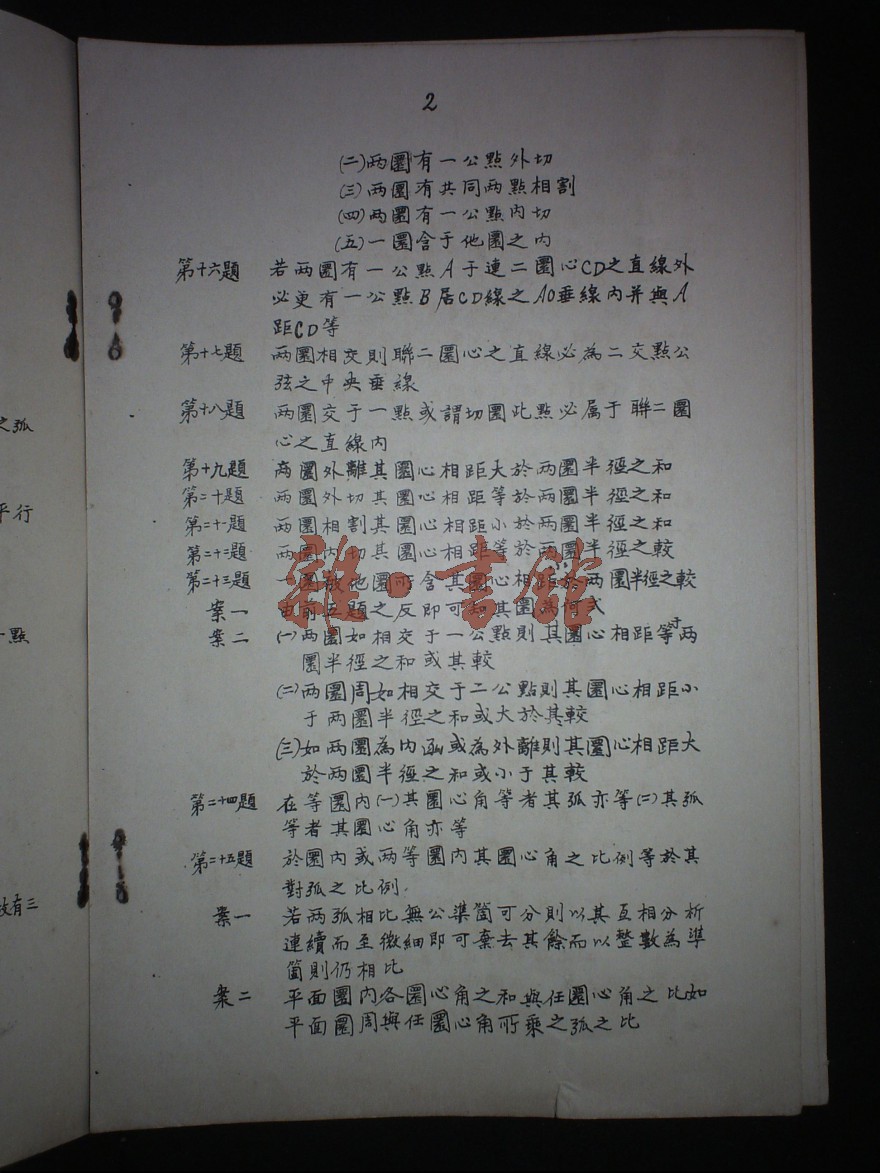 2
(二)两圜有一公點外切
(三)两圜有共同两點相割
(四)两圜有一公點内切
(五)一圜含于他圜之内
第十六題 若两圜有一公點A于連二圜心CD之直線外
必更有一公點B居CD線之AO垂線内并與A
距CD等
第十七題 两圜相交則聯二圜心之直線必為二交點公
弦之中央垂線
第十八題 两圜交于一點或謂切圜此點必属于聯二圜
心之直線内
第十九題 两圜外離其圜心相距大於两圜半徑之和
第二十題 两圜外切其圜心相距等於两圜半徑之和
第二十一題 两圜相割其圜心相距小於两圜半徑之和
第二十二題 两圜内切其圜心相距等於两圜半徑之較
第二十三題 一圜被他圜所含其圜心相距於两圜半徑之較
案一 由前五題之反即可知其圜為何式
案二 (一)两圜如相交于一公點則其圜心相距等于两
圜半徑之和或其較
(二)两圜周如相交于二公點則其圜心相距小
于两圜半徑之和或大於其較
(三)如两圜為内函或為外離則其圜心相距大
於两圜半徑之和或小于其較
第二十四題 在等圜内(一)其圜心角等者其弧亦等(二)其弧
等者其圜心角亦等
第二十五題 於圜内或两等圜内其圜心角之比例等於其
對弧之比例.
案一 若两弧相比無公準箇可分則以其互相分析
連續而至微細即可棄去其餘而以整數為準
箇則仍相比
案二 平面圜内各圜心角之和與任圜心角之比如
平面圜周與任圜心角所乘之弧之比
之弧
平行
一點
故有三
雜·書館